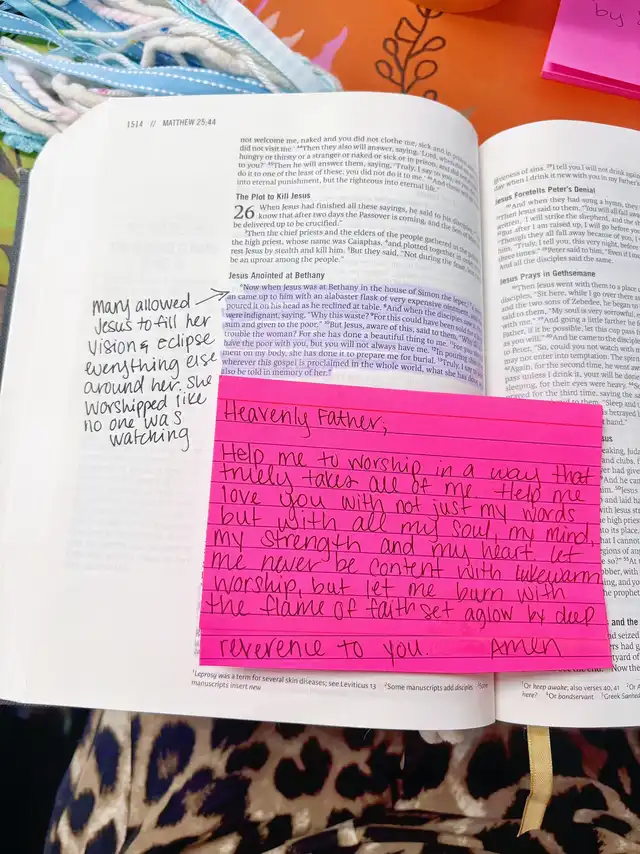 by
1514 // MATTHEW 25:44
not welcome me, naked and you did not clothe me, sick and in
did not visit me.' 44Then they also will answer, saying, 'Lord, when
hungry or thirsty or a stranger or naked or sick or in prison, and did
to you?' 45Then he will answer them, saying, 'Truly, I say to you,
do it to one of the least of these, you did not do it to me.' 46And
into eternal punishment, but the righteous into eternal life."
The Plot to Kill Jesus
26 When Jesus had finished all these sayings, he said to his
know that after two days the Passover is coming, and the Son
be delivered up to be crucified."
3Then the chief priests and the elders of the people gathered in the
the high priest, whose name was Caiaphas, 4and plotted together
rest Jesus by stealth and kill him. 5But they said, "Not during the feast,
be an uproar among the people."
Jesus Anointed at Bethany
6Now when Jesus was at Bethany in the house of Simon the leper,
an came up to him with an alabaster flask of very expensive ointment,
poured it on his head as he reclined at table. 8And when the disciples
were indignant, saying, "Why this waste? 9For this could have been sold
sum and given to the poor." 10But Jesus, aware of this, said to them,
trouble the woman? For she has done a beautiful thing to me. 11For you
have the poor with you, but you will not always have me. 12In pouring
ment on my body, she has done it to prepare me for burial. 13Truly, I say
wherever this gospel is proclaimed in the whole world, what she has done
also be told in memory of her."
Mary allowed
Jesus to fill her
vision & eclipse
everything else
around her. She
worshipped like
no one was
watching
Heavenly Father,
Help me to worship in a way that
truely takes all of me. Help me
love you with not just my words
but with all my soul, my mind,
my strength and my heart. let
me never be content with lukewarm
worship, but let me burn with
the flame of faith set aglow by deep
reverence to you. Amen
1Leprosy was a term for several skin diseases; see Leviticus 13 2Some manuscripts add disciples 3Some
manuscripts insert new
giveness of sins. 29I tell you I will not drink again
when I drink it new with you in my Father's
Jesus Foretells Peter's Denial
30And when they had sung a hymn, they
31Then Jesus said to them, "You will all fall
written, 'I will strike the shepherd, and the
32But after I am raised up, I will go before you
"Though they all fall away because of you, I
him, "Truly, I tell you, this very night, before
three times." 35Peter said to him, "Even if I must
And all the disciples said the same.
Jesus Prays in Gethsemane
36Then Jesus went with them to a place
disciples, "Sit here, while I go over there
and the two sons of Zebedee, he began to
said to them, "My soul is very sorrowful,
with me." 39And going a little farther he
Father, if it be possible, let this cup pass
as you will." 40And he came to the disciples
to Peter, "So, could you not watch with me
may not enter into temptation. The spirit
42Again, for the second time, he went away
pass unless I drink it, your will be done
sleeping, for their eyes were heavy.
prayed for the third time, saying the
them, "Sleep and
hand."
1Or keep awake; also verses 40, 41 2Or
here? 4Or bondservant 5Greek Sanhedrin